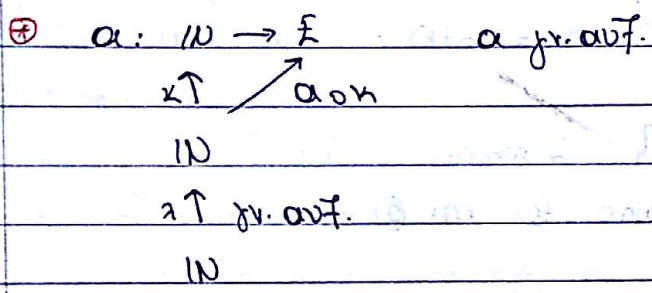 ⊛ a: ℕ → E a γν. αυξ.
κ↑ ↗ a∘κ
ℕ
λ↑ γν. αυξ.
ℕ